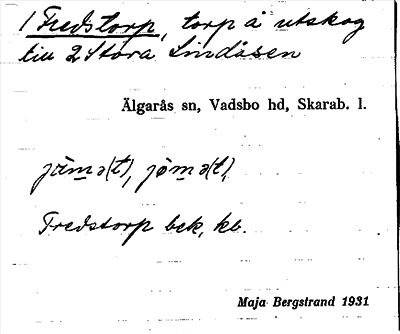 1 Fredstorp, torp å utskog
till 2 Stora Lindåsen
Älgarås sn, Vadsbo hd, Skarab. l.
Fredstorp bek, kb.
Maja Bergstrand 1931